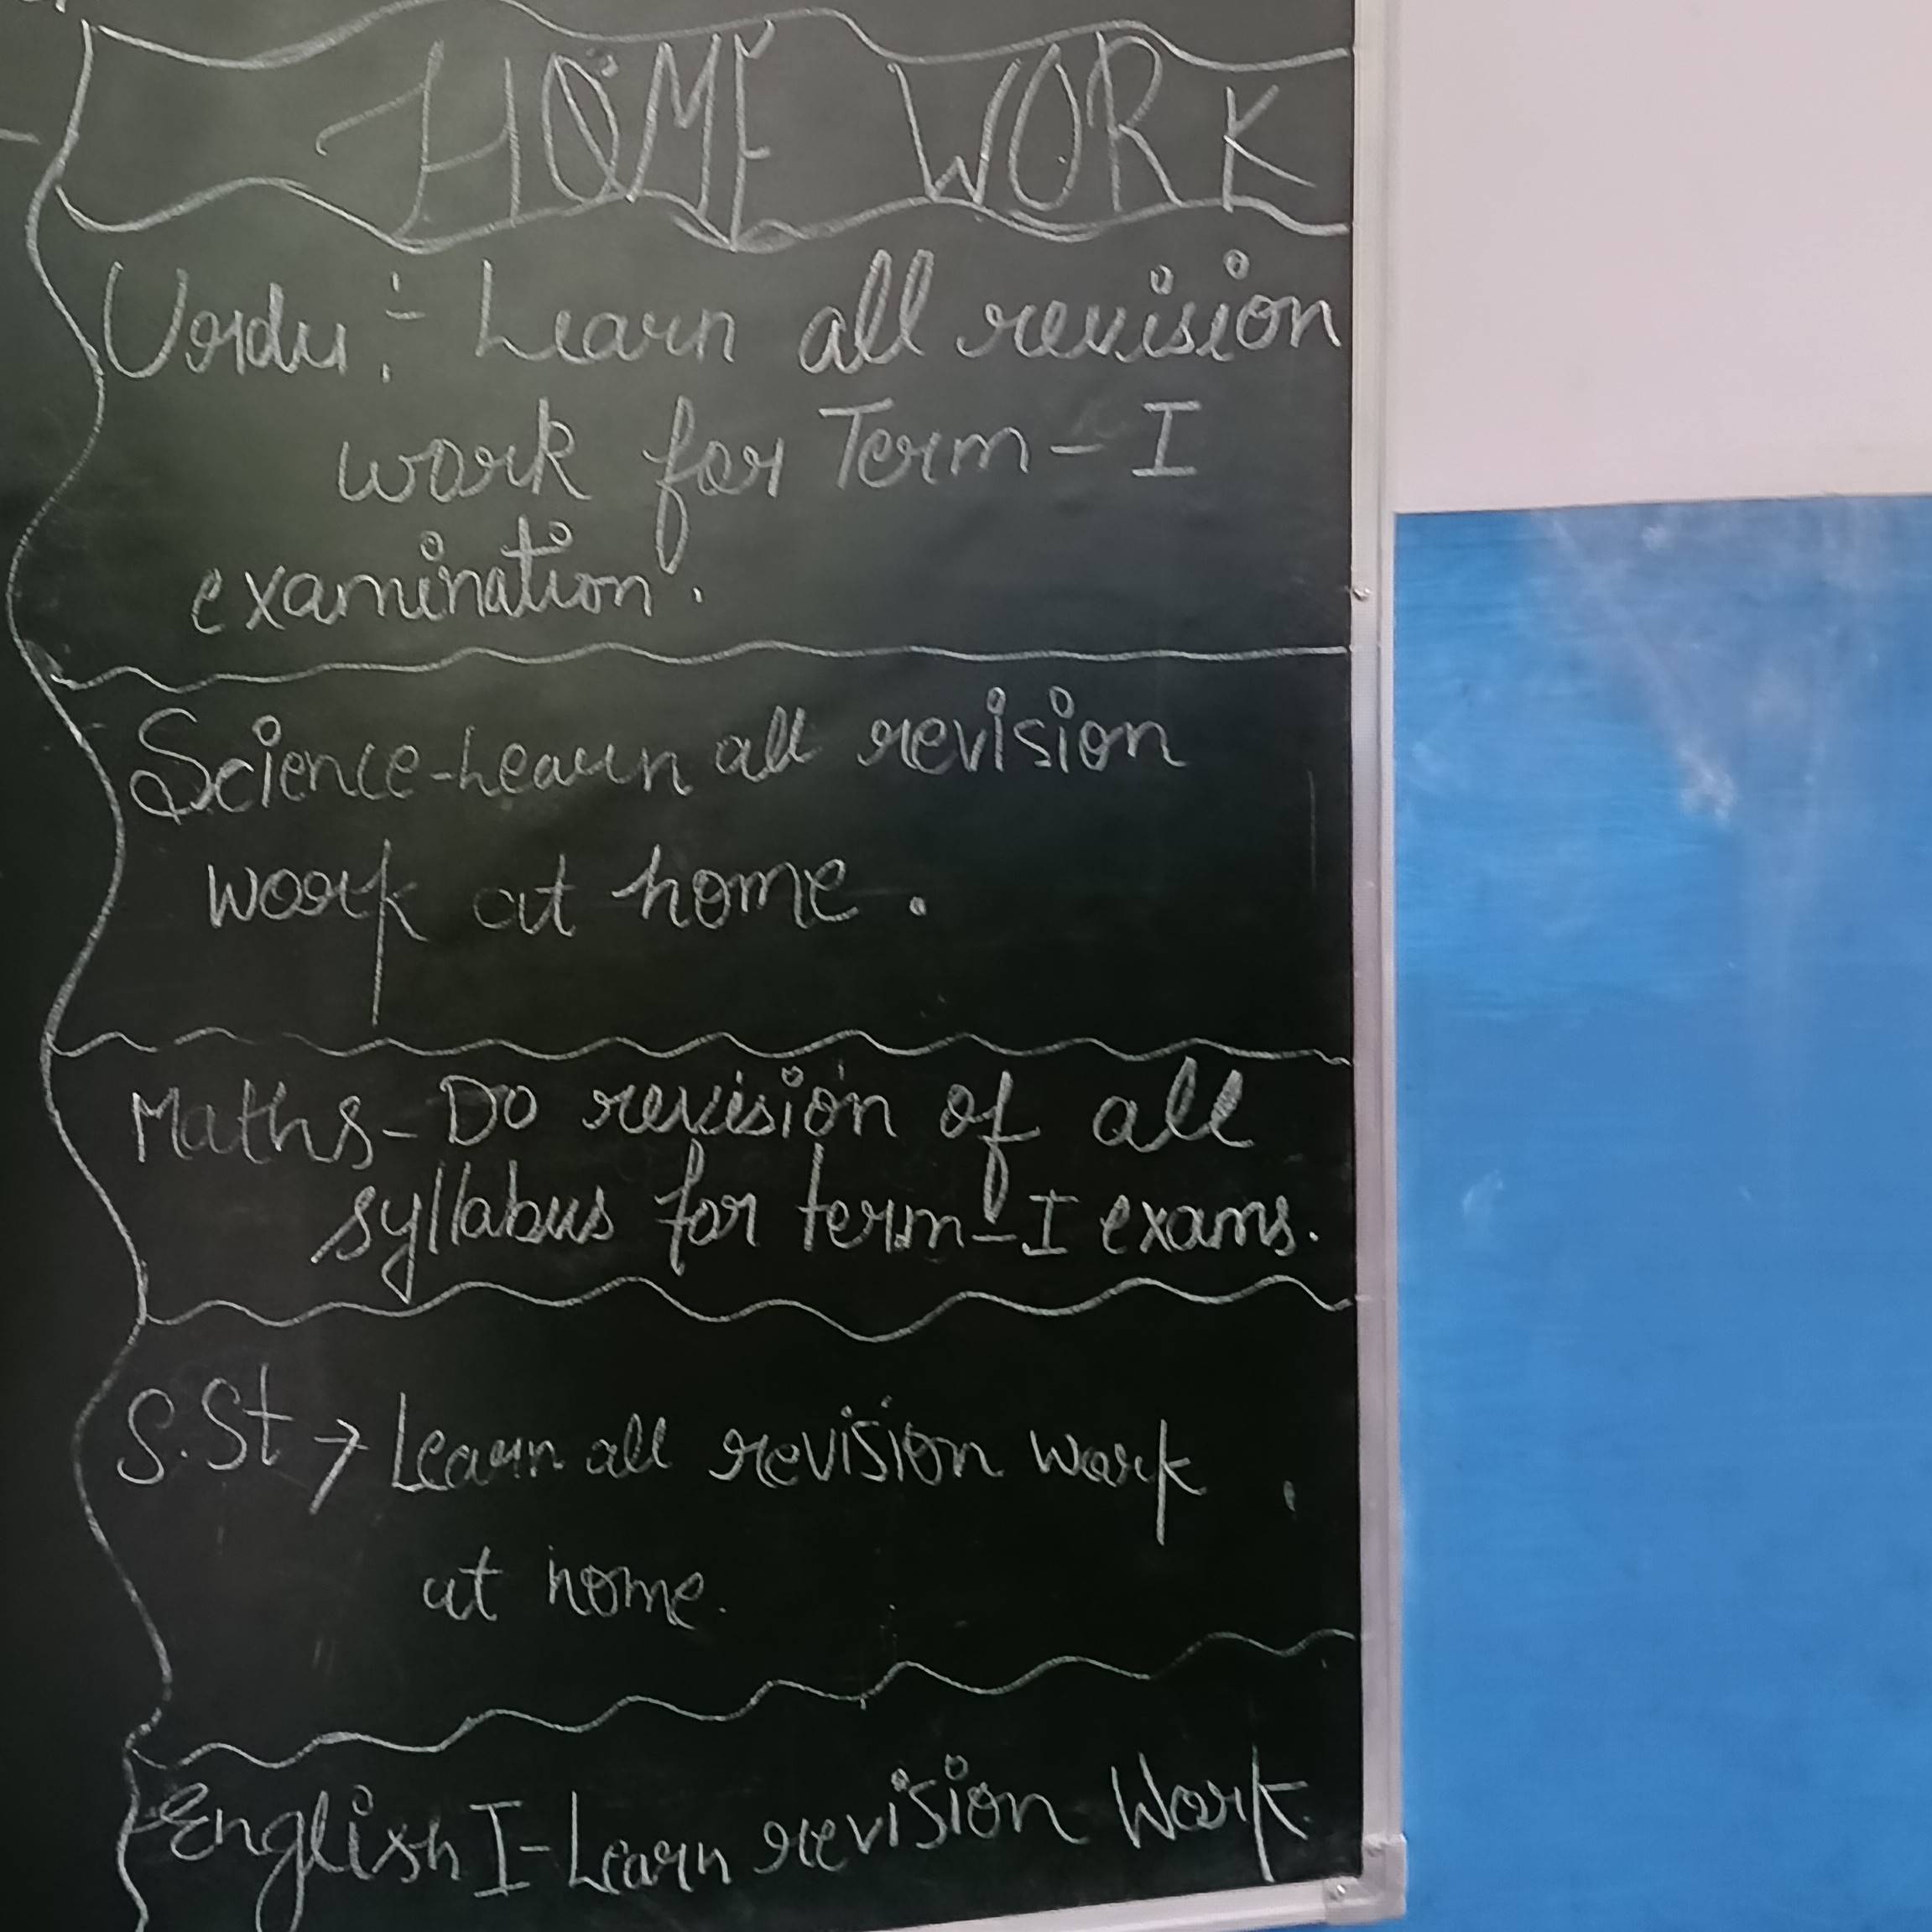 HOME WORK
Urdu :- Learn all revision
work for Term - I
examination.
Science-Learn all revision
work at home.
Maths-Do revision of all
syllabus for term-I exams.
S.St → Learn all revision work
at home.
English I-Learn revision Work.